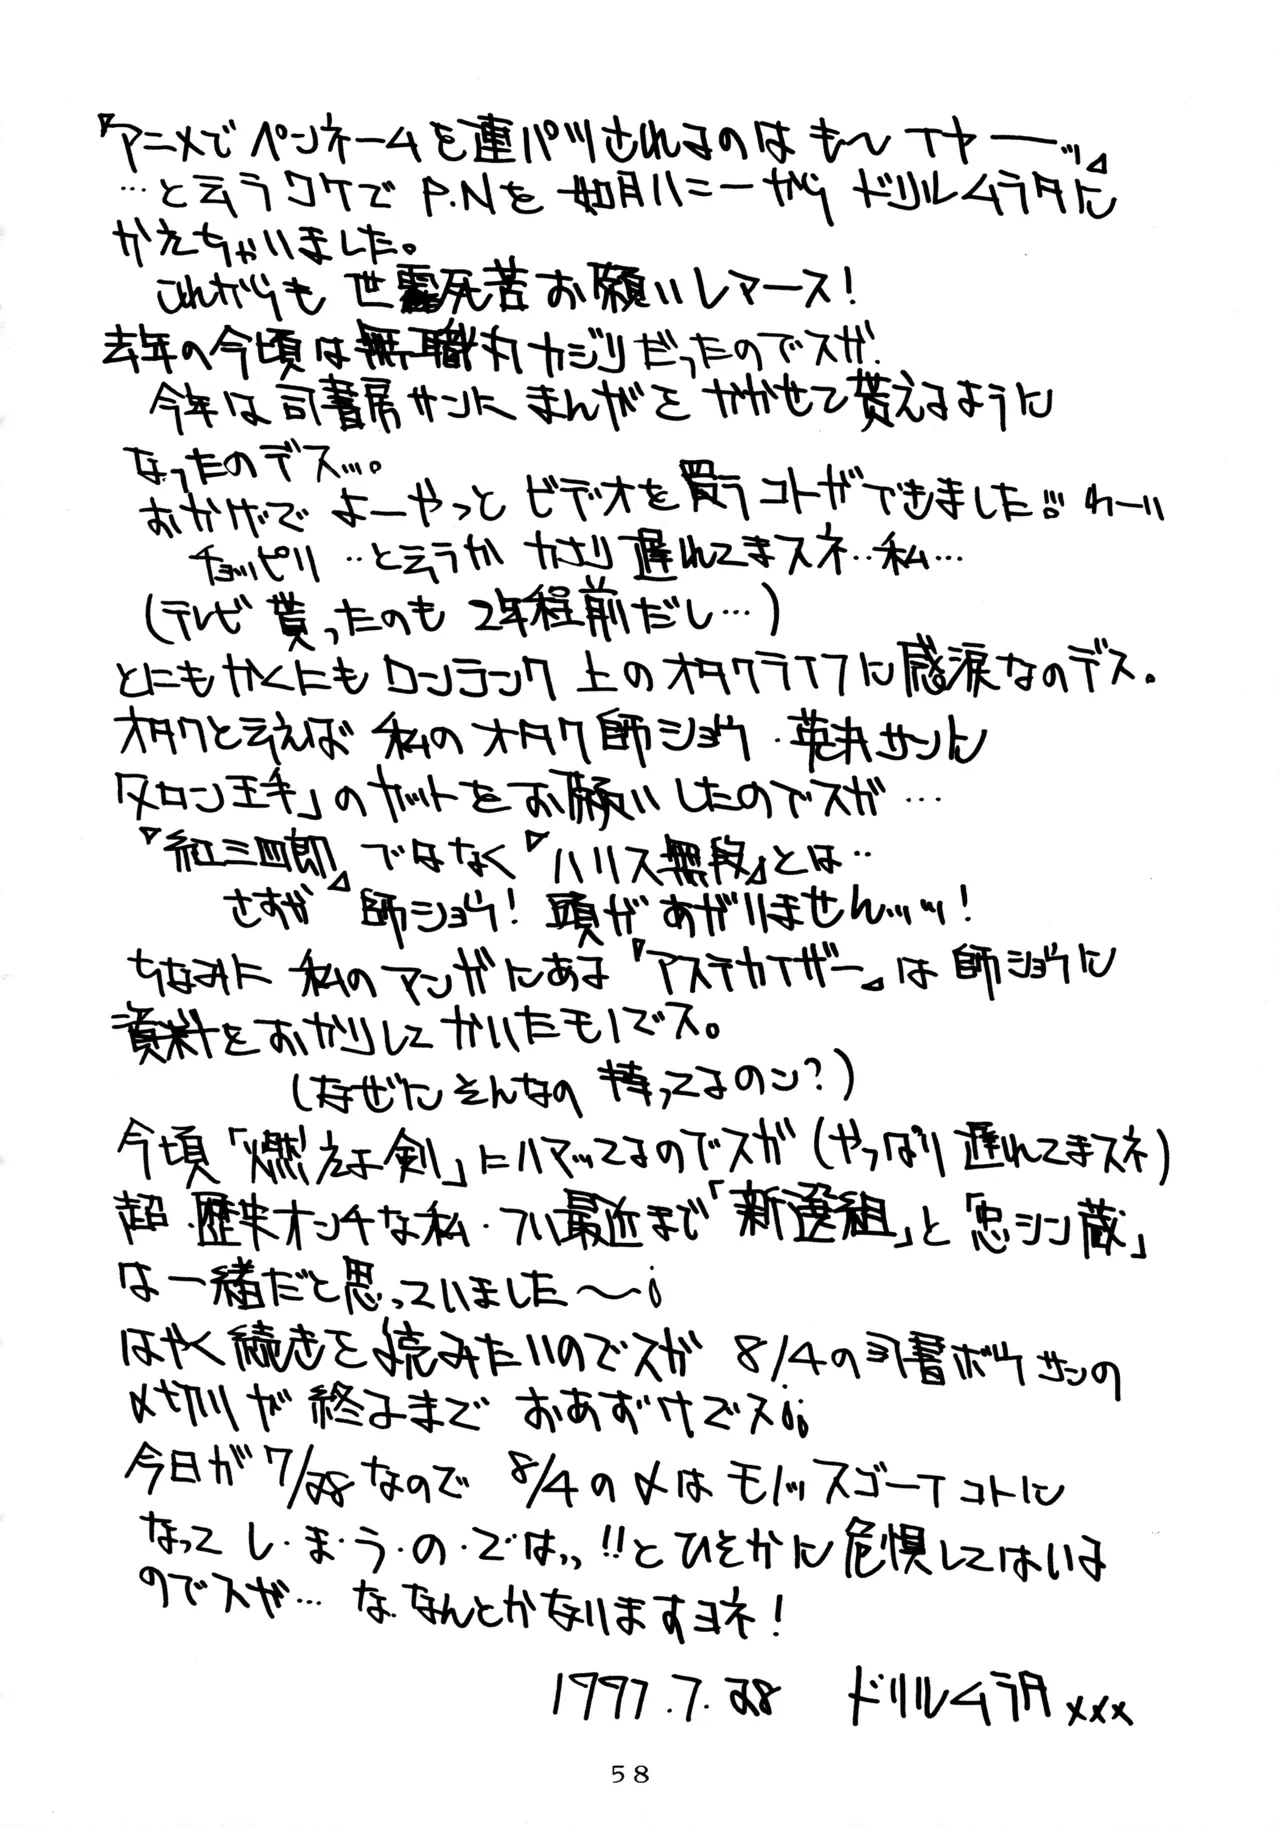 『アニメでペンネームを連パツされるのはも〜イヤ―ッ』
…と云うワケでP.Nを如月ハニーからドリルムラタに
かえちゃいました。
これからも世露死苦お願いしマース!
去年の今頃は無職丸カジリだったのでスガ
今年は司書房サンにまんがをかかせて貰えるように
なったのデス…。
おかげでよーやっとビデオを買うコトガできました!! わーい
チョッピリ…と云うかかなり遅れてまスネ…私…
(テレビ貰ったのも2年程前だし…)
とにもかくにもワンランク上のオタクライフに感涙なのデス。
オタクと云えば私のオタク師ショウ・英丸サンに
「メロン王手」のカットをお願いしたのでスガ…
『紅三四郎』ではなく『ハリス無段』とは…
さすが師ショウ!頭があがりませんッッ!
ちなみに私のマンガにある『アステカイザー』は師ショウに
資料をおかりしてかいたモノでス。
(なぜにそんなの持ってるのン?)
今頃「燃えよ剣」にハマッてるのでスガ(やっぱり遅れてまスネ)
超・歴史オンチな私・つい最近まで「新選組」と「忠シン蔵」
は一緒だと思っていました〜¡
はやく続きを読みたいのでスガ 8/4の司書ボウサンの
〆切りが終るまでおあずけでス¡¡
今日が7/28なので 8/4の〆はモノッスゴーイコトに
なってし・ま・う・の・ではっっ!!とひそかに危惧してはいる
のでスガ… な、なんとかなりますヨネ!
1997.7.28 ドリルムラタ xxx
58